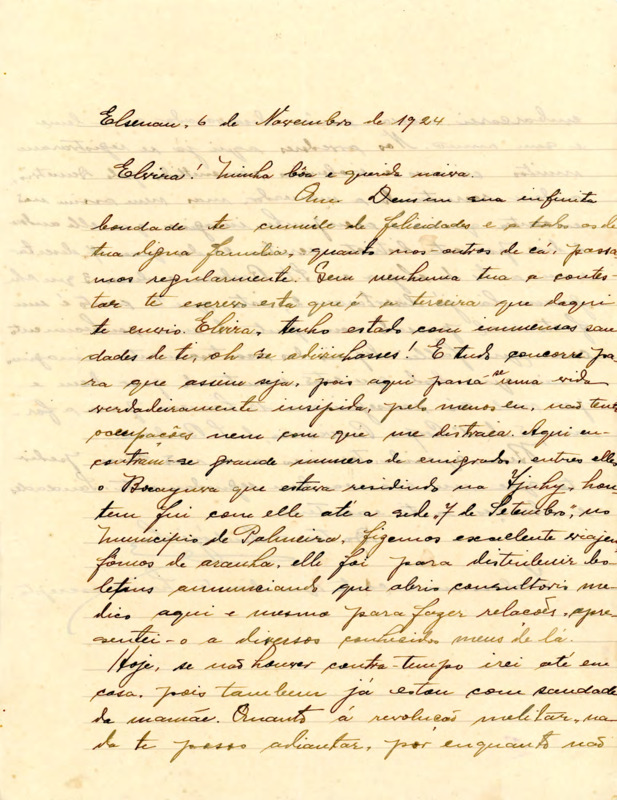 Elsenau, 6 de Novembro de 1924
Elvira! Minha bôa e querida noiva.
Que Deus em sua infinita
bondade te cumúle de felicidades e a todos os de
tua digna familia, quanto nos outros de cá, passa
mos regularmente. Sem nenhuma tua a contes-
tar te escrevo esta que é a terceira que daqui
te envio. Elvira, tenho estado com immensas sau
dades de ti, oh se adivinhasses! E tudo concorre pa
ra que assim seja, pois aqui passa-se uma vida
verdadeiramente insipida, pelo menos eu, não tenho
occupações nem com que me distraia. Aqui en-
contram-se grande numero de emigrados, entres elles
o Bocayuva que estava residindo na Ijuhy, hon-
tem fui com elle até a séde "7 de Setembro", no
municipio de Palmeira, fizemos excellente viajem
fômos de aranha, elle foi para distribuir bo
letins annunciando que abriu consultorio me
dico aqui e mesmo para fazer relacões, apre-
sentei-o a diversos conhecidos meus de lá.
Hoje, se não houver contra-tempo irei até em
casa, pois tambem já estou com saudade
da mamãe. Quanto á revolucão militar, na
da te posso adiantar, por enquanto não